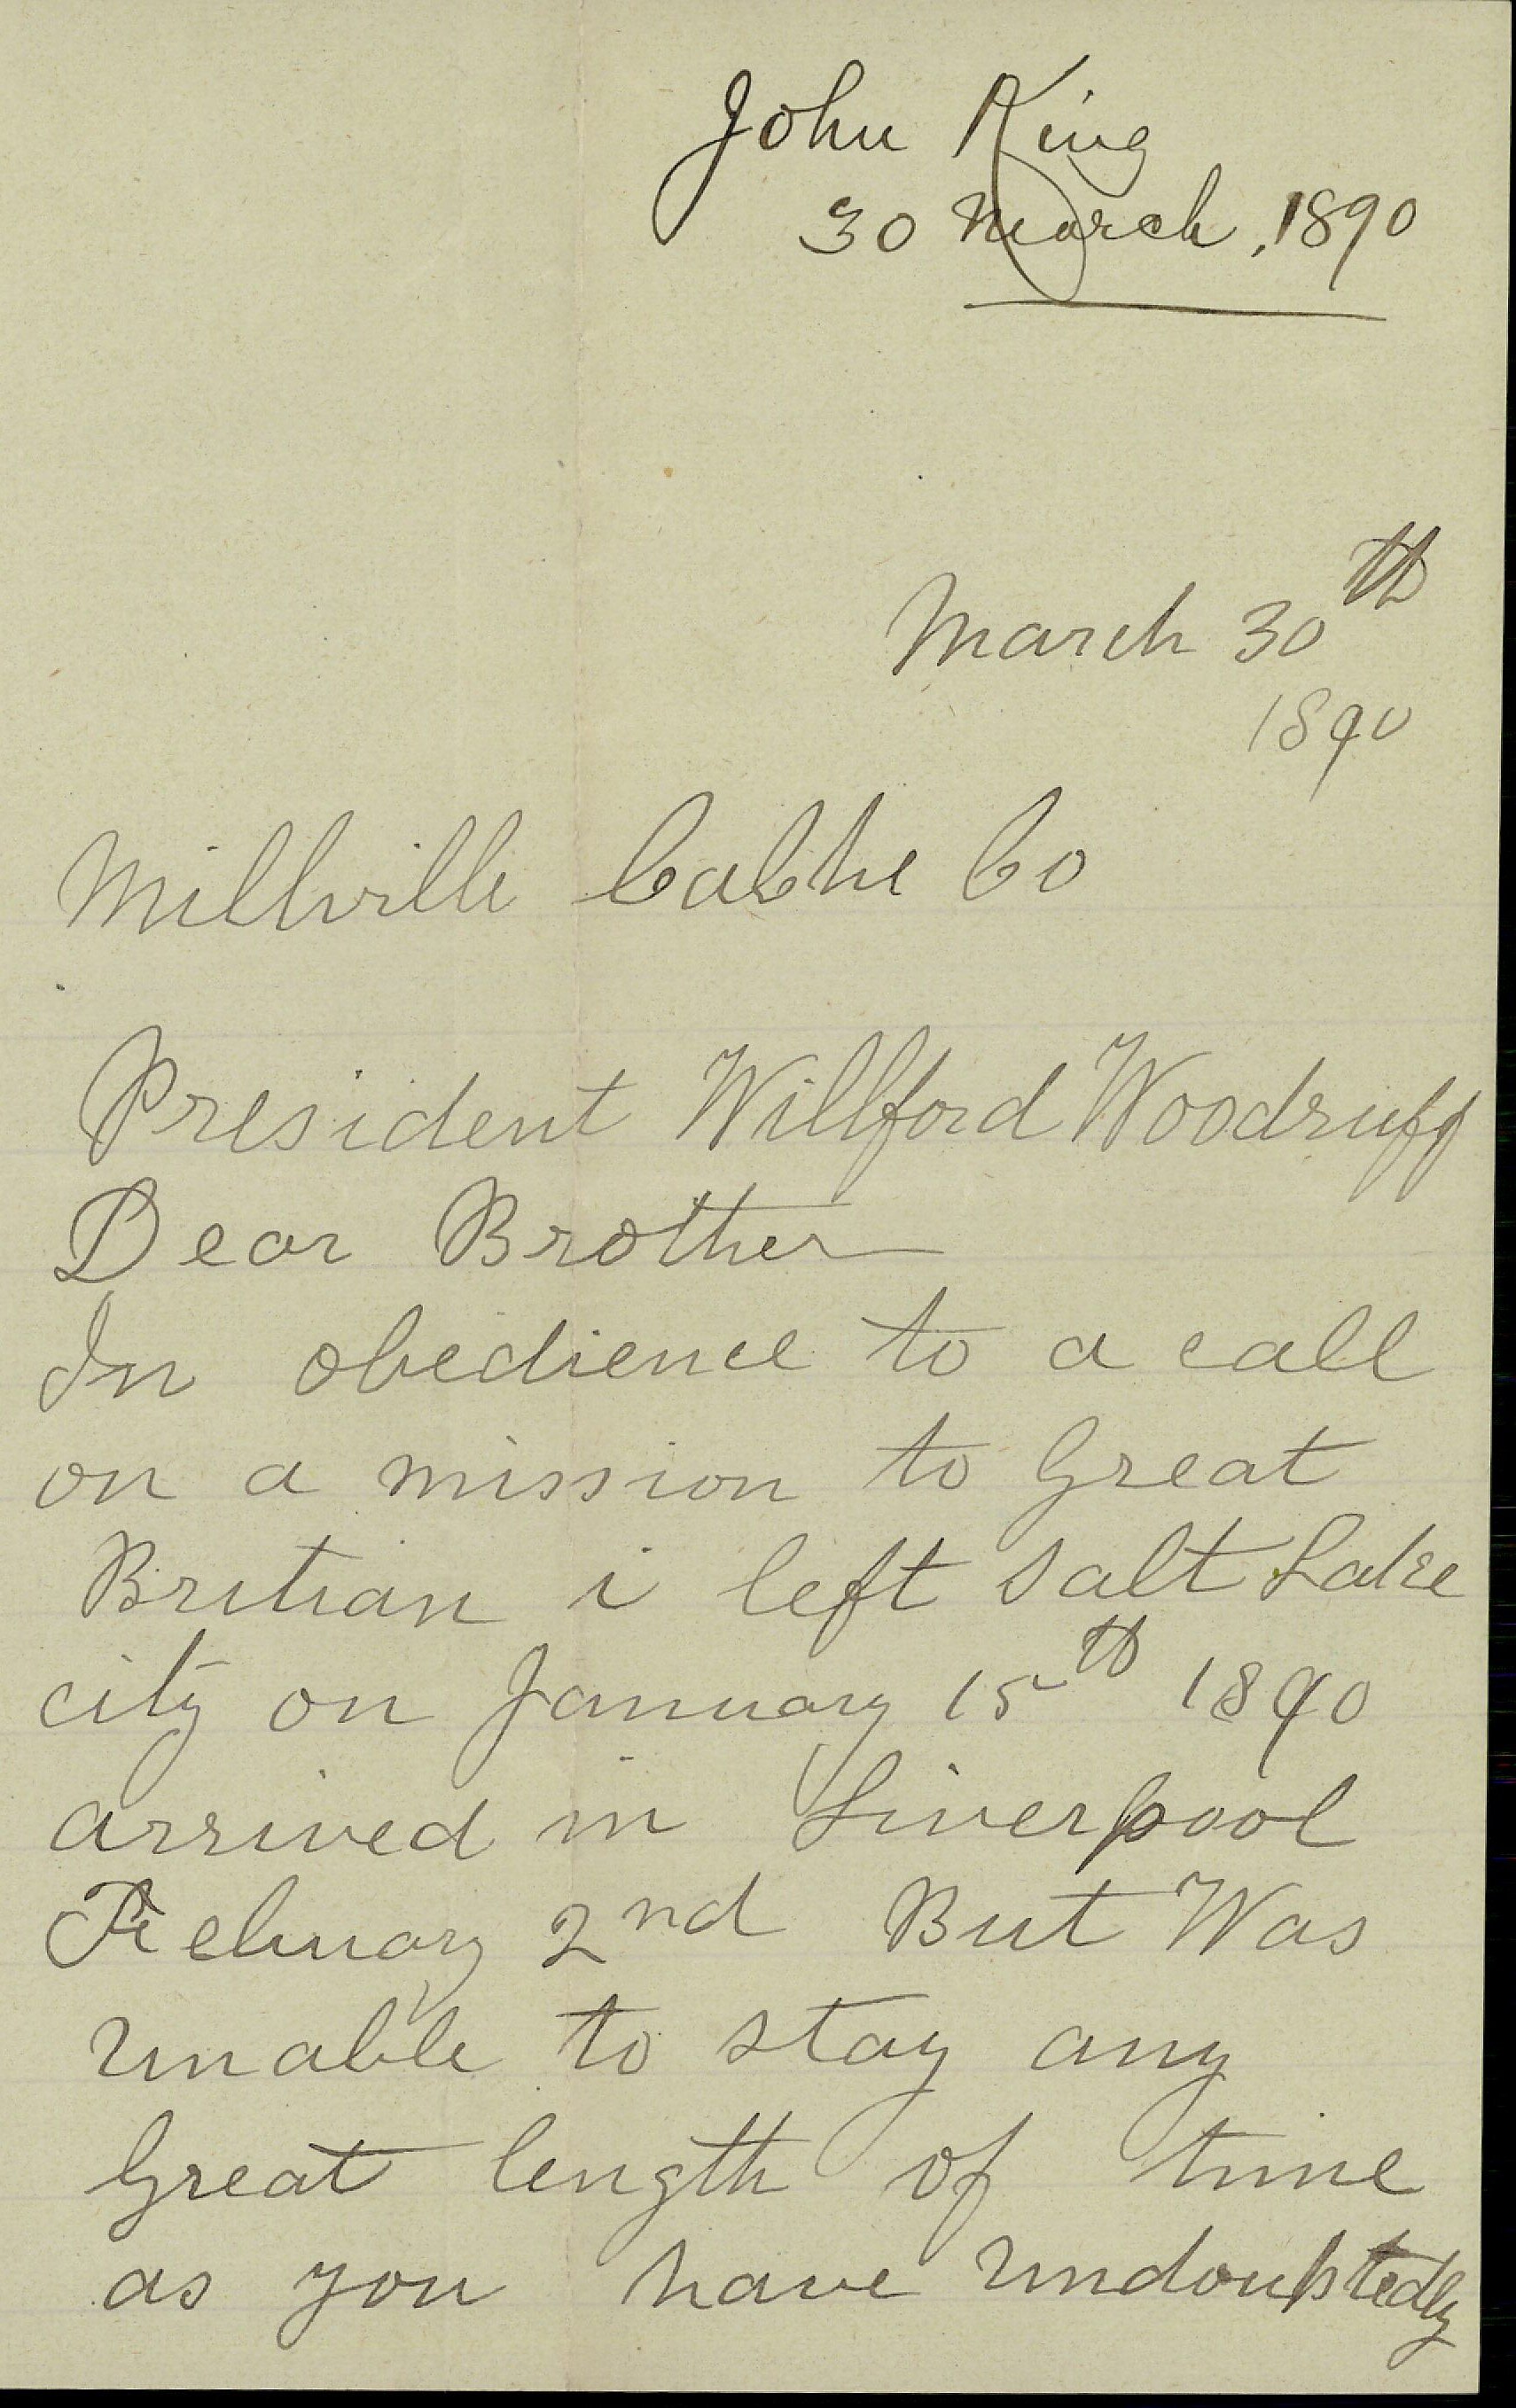 John King
30 March, 1890
March 30th
1890
Millville Cabhe Co
President Willford Woodruff
Dear Brother
In obedience to a call
on a mission to Great
Britian i left Salt Lake
city on January 15th 1890
arrived in Liverpool
Febuary 2nd But Was
unable to stay any
Great length of time
as you have undoubtedly